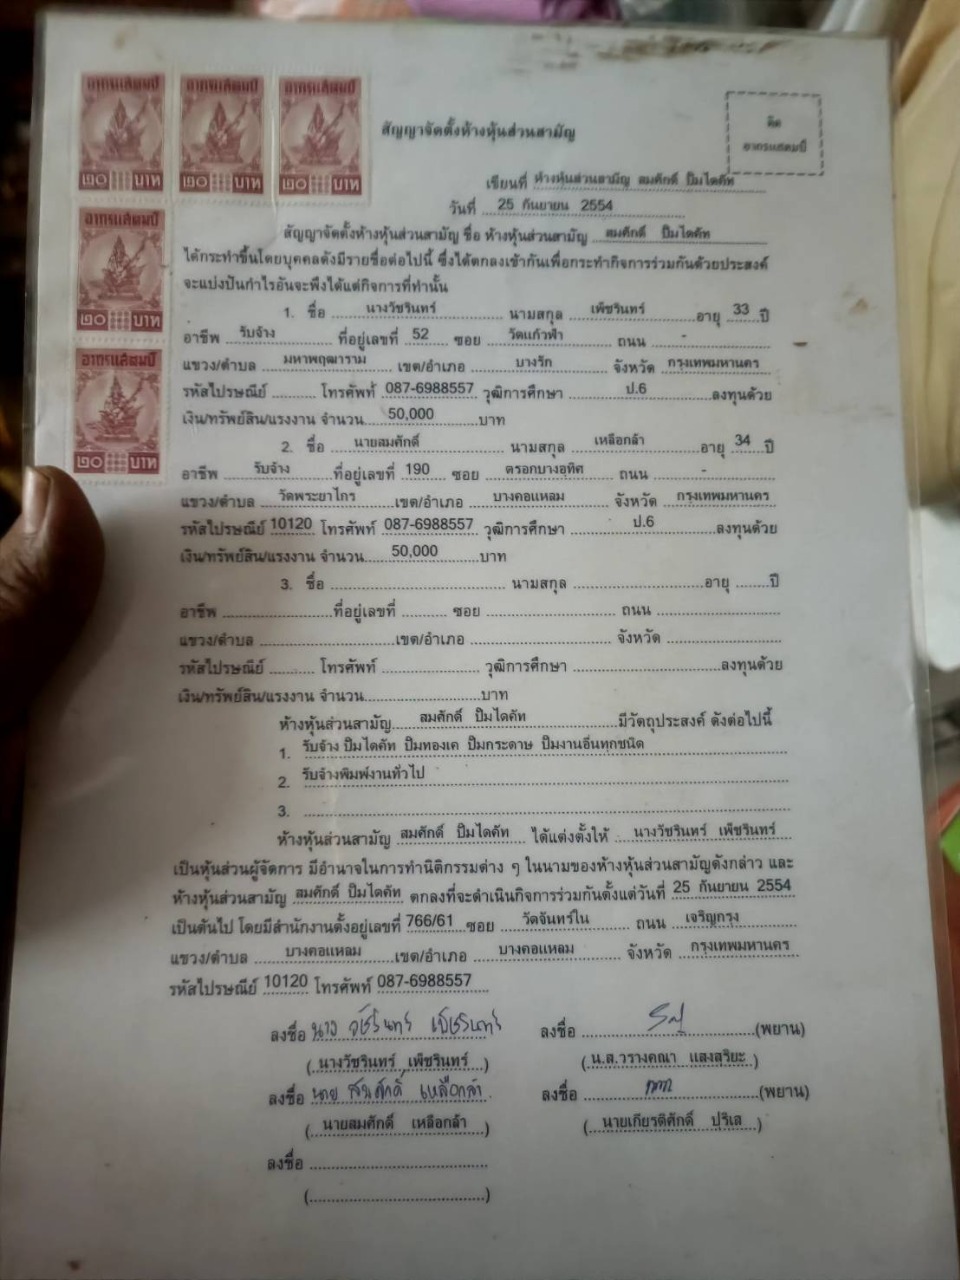 อากรแสตมป์ อากรแสตมป์ อากรแสตมป์
๒๐ บาท ๒๐ บาท ๒๐ บาท
อากรแสตมป์
๒๐ บาท
อากรแสตมป์
๒๐ บาท
สัญญาจัดตั้งห้างหุ้นส่วนสามัญ
ติด
อากรแสตมป์
เขียนที่ ห้างหุ้นส่วนสามัญ สมศักดิ์ ปั๊มไดคัท
วันที่ 25 กันยายน 2554
สัญญาจัดตั้งห้างหุ้นส่วนสามัญ ชื่อ ห้างหุ้นส่วนสามัญ สมศักดิ์ ปั๊มไดคัท
ได้กระทำขึ้นโดยบุคคลดังมีรายชื่อต่อไปนี้ ซึ่งได้ตกลงเข้ากันเพื่อกระทำกิจการร่วมกันด้วยประสงค์
จะแบ่งปันกำไรอันจะพึงได้แต่กิจการที่ทำนั้น
1. ชื่อ นางวัชรินทร์ นามสกุล เพ็ชรินทร์ อายุ 33 ปี
อาชีพ รับจ้าง ที่อยู่เลขที่ 52 ซอย วัดแก้วฟ้า ถนน -
แขวง/ตำบล มหาพฤฒาราม เขต/อำเภอ บางรัก จังหวัด กรุงเทพมหานคร
รหัสไปรษณีย์ โทรศัพท์ 087-6988557 วุฒิการศึกษา ป.6 ลงทุนด้วย
เงิน/ทรัพย์สิน/แรงงาน จำนวน 50,000 บาท
2. ชื่อ นายสมศักดิ์ นามสกุล เหลือกล้า อายุ 34 ปี
อาชีพ รับจ้าง ที่อยู่เลขที่ 190 ซอย ตรอกบางอุทิศ ถนน -
แขวง/ตำบล วัดพระยาไกร เขต/อำเภอ บางคอแหลม จังหวัด กรุงเทพมหานคร
รหัสไปรษณีย์ 10120 โทรศัพท์ 087-6988557 วุฒิการศึกษา ป.6 ลงทุนด้วย
เงิน/ทรัพย์สิน/แรงงาน จำนวน 50,000 บาท
3. ชื่อ นามสกุล อายุ ปี
อาชีพ ที่อยู่เลขที่ ซอย ถนน
แขวง/ตำบล เขต/อำเภอ จังหวัด
รหัสไปรษณีย์ โทรศัพท์ วุฒิการศึกษา ลงทุนด้วย
เงิน/ทรัพย์สิน/แรงงาน จำนวน บาท
ห้างหุ้นส่วนสามัญ สมศักดิ์ ปั๊มไดคัท มีวัตถุประสงค์ ดังต่อไปนี้
1. รับจ้าง ปั๊มไดคัท ปั๊มทองเค ปั๊มกระดาษ ปั๊มงานอื่นทุกชนิด
2. รับจ้างพิมพ์งานทั่วไป
3.
ห้างหุ้นส่วนสามัญ สมศักดิ์ ปั๊มไดคัท ได้แต่งตั้งให้ นางวัชรินทร์ เพ็ชรินทร์
เป็นหุ้นส่วนผู้จัดการ มีอำนาจในการทำนิติกรรมต่าง ๆ ในนามของห้างหุ้นส่วนสามัญดังกล่าว และ
ห้างหุ้นส่วนสามัญ สมศักดิ์ ปั๊มไดคัท ตกลงที่จะดำเนินกิจการร่วมกันตั้งแต่วันที่ 25 กันยายน 2554
เป็นต้นไป โดยมีสำนักงานตั้งอยู่เลขที่ 766/61 ซอย วัดจันทร์ใน ถนน เจริญกรุง
แขวง/ตำบล บางคอแหลม เขต/อำเภอ บางคอแหลม จังหวัด กรุงเทพมหานคร
รหัสไปรษณีย์ 10120 โทรศัพท์ 087-6988557
ลงชื่อ นาง วัชรินทร์ เพ็ชรินทร์ ลงชื่อ (พยาน)
(นางวัชรินทร์ เพ็ชรินทร์) (น.ส.วรางคณา แสงสุริยะ)
ลงชื่อ นาย สมศักดิ์ เหลือกล้า ลงชื่อ (พยาน)
(นายสมศักดิ์ เหลือกล้า) (นายเกียรติศักดิ์ ปุริเส)
ลงชื่อ